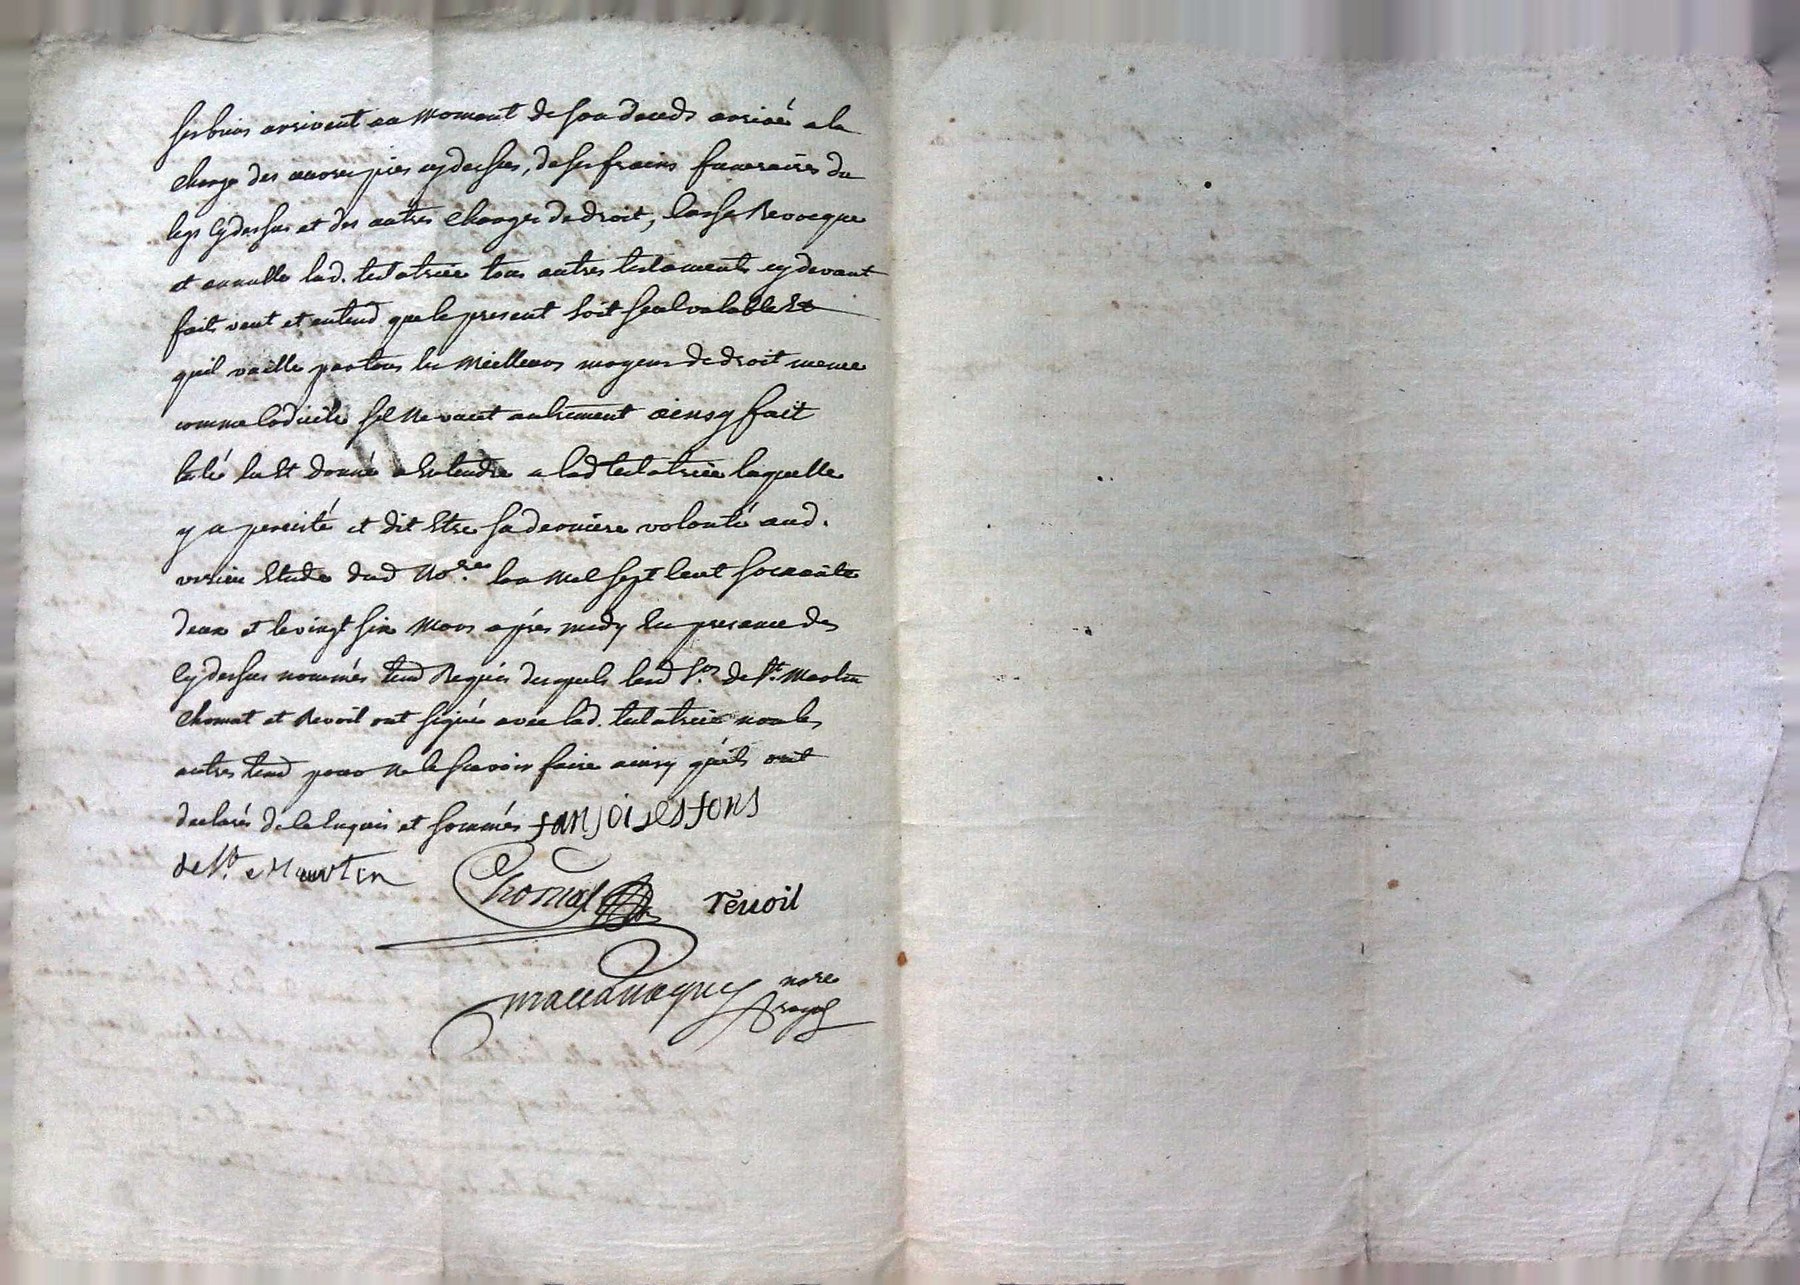 ses biens arrivent au moment de son deceds arrivé a la
charge des œuvres pies cy dessus, de ses frains funeraires du
legs cy dessus et des autres charges de droit, Casse Revocque
et annulle lad. testatrice tous autres testaments cy devant
faits veut et entend que le present soit seul valable Et
quil vaille par tous les Meilleurs moyens de droit meme
comme Codicile sil Ne vaut autrement ainsy fait
leu Et donné a Entendre a lad testatrice laquelle
y a percisté et dit Etre sa derniere volonté aud.
Etude dud No.re lan Mil sept Cent soixante
deux et le vingt six Mars aprés midy En presance des
Cy dessus nommés tem Requis desquels led S.r de S.t Martin
Chomat et Revoil ont signés avec lad. testatrice non les
autres tem pour Ne le scavoir faire ainsy qu'ils ont
declarés de ce Enquis et sommés
de St. Martin Chomat revoil
nore
royal